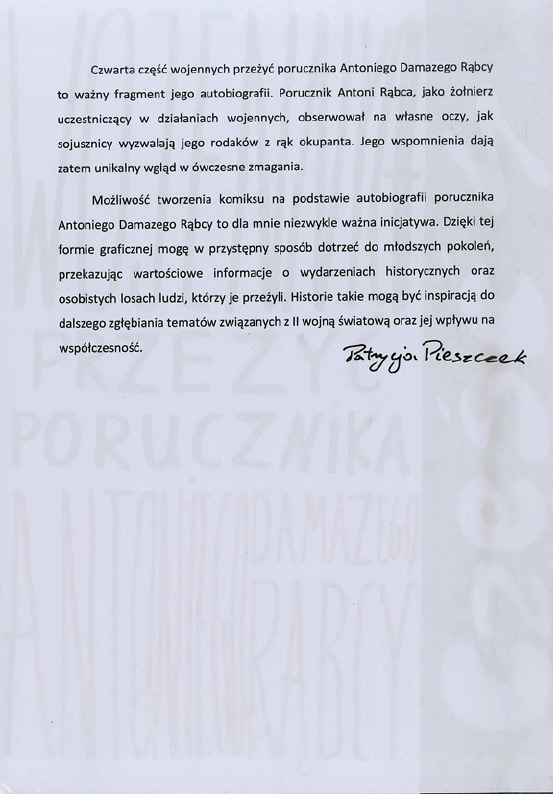 Czwarta część wojennych przeżyć porucznika Antoniego Damazego Rąbcy
to ważny fragment jego autobiografii. Porucznik Antoni Rąbca, jako żołnierz
uczestniczący w działaniach wojennych, obserwował na własne oczy, jak
sojusznicy wyzwalają jego rodaków z rąk okupanta. Jego wspomnienia dają
zatem unikalny wgląd w ówczesne zmagania.
Możliwość tworzenia komiksu na podstawie autobiografii porucznika
Antoniego Damazego Rąbcy to dla mnie niezwykle ważna inicjatywa. Dzięki tej
formie graficznej mogę w przystępny sposób dotrzeć do młodszych pokoleń,
przekazując wartościowe informacje o wydarzeniach historycznych oraz
osobistych losach ludzi, którzy je przeżyli. Historie takie mogą być inspiracją do
dalszego zgłębiania tematów związanych z II wojną światową oraz jej wpływu na
współczesność.
Patrycja Pieszczek
PRZEŻYĆ
PORUCZNIKA
ANTONIEGO
DAMAZEGO
RĄBCY